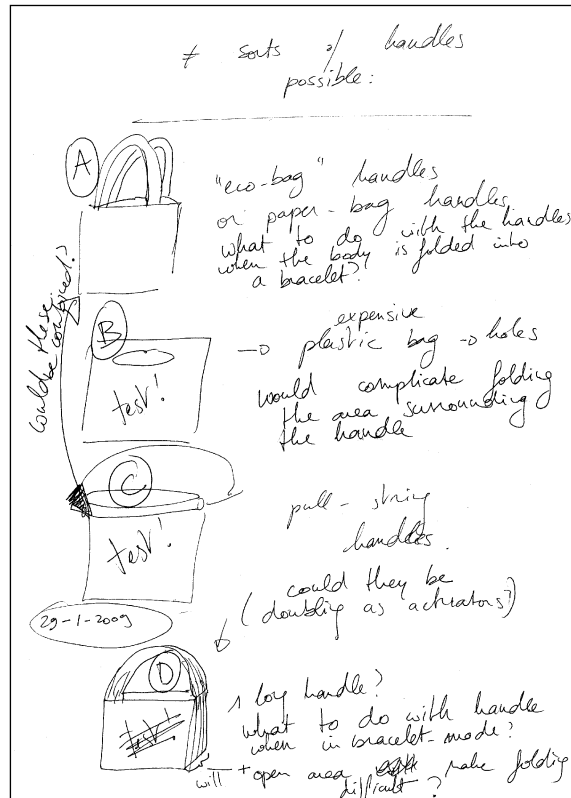 ≠ sorts of handles
possible:
A
"eco-bag" handles
or paper-bag handles
what to do with the handles
when the body is folded into
a bracelet?
Could be these combined?
B
test!
expensive
plastic bag → holes
would complicate folding
the area surrounding
the handle
C
test!
pull-string
handles.
could they be
(doubling as actuators?)
29-1-2009
D
test!
1 long handle?
what to do with handle
when in bracelet-mode?
will + open area make folding
difficult?